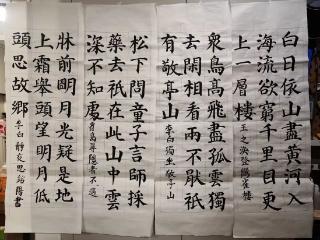 白日依山盡黃河入
海流欲窮千里目更
上一層樓王之渙登鸛雀樓
眾鳥高飛盡孤雲獨
去閑相看兩不厭衹
有敬亭山李白獨坐敬亭山
松下問童子言師採
藥去衹在此山中雲
深不知處賈島尋隱者不遇
牀前明月光疑是地
上霜舉頭望明月低
頭思故鄉李白靜夜思